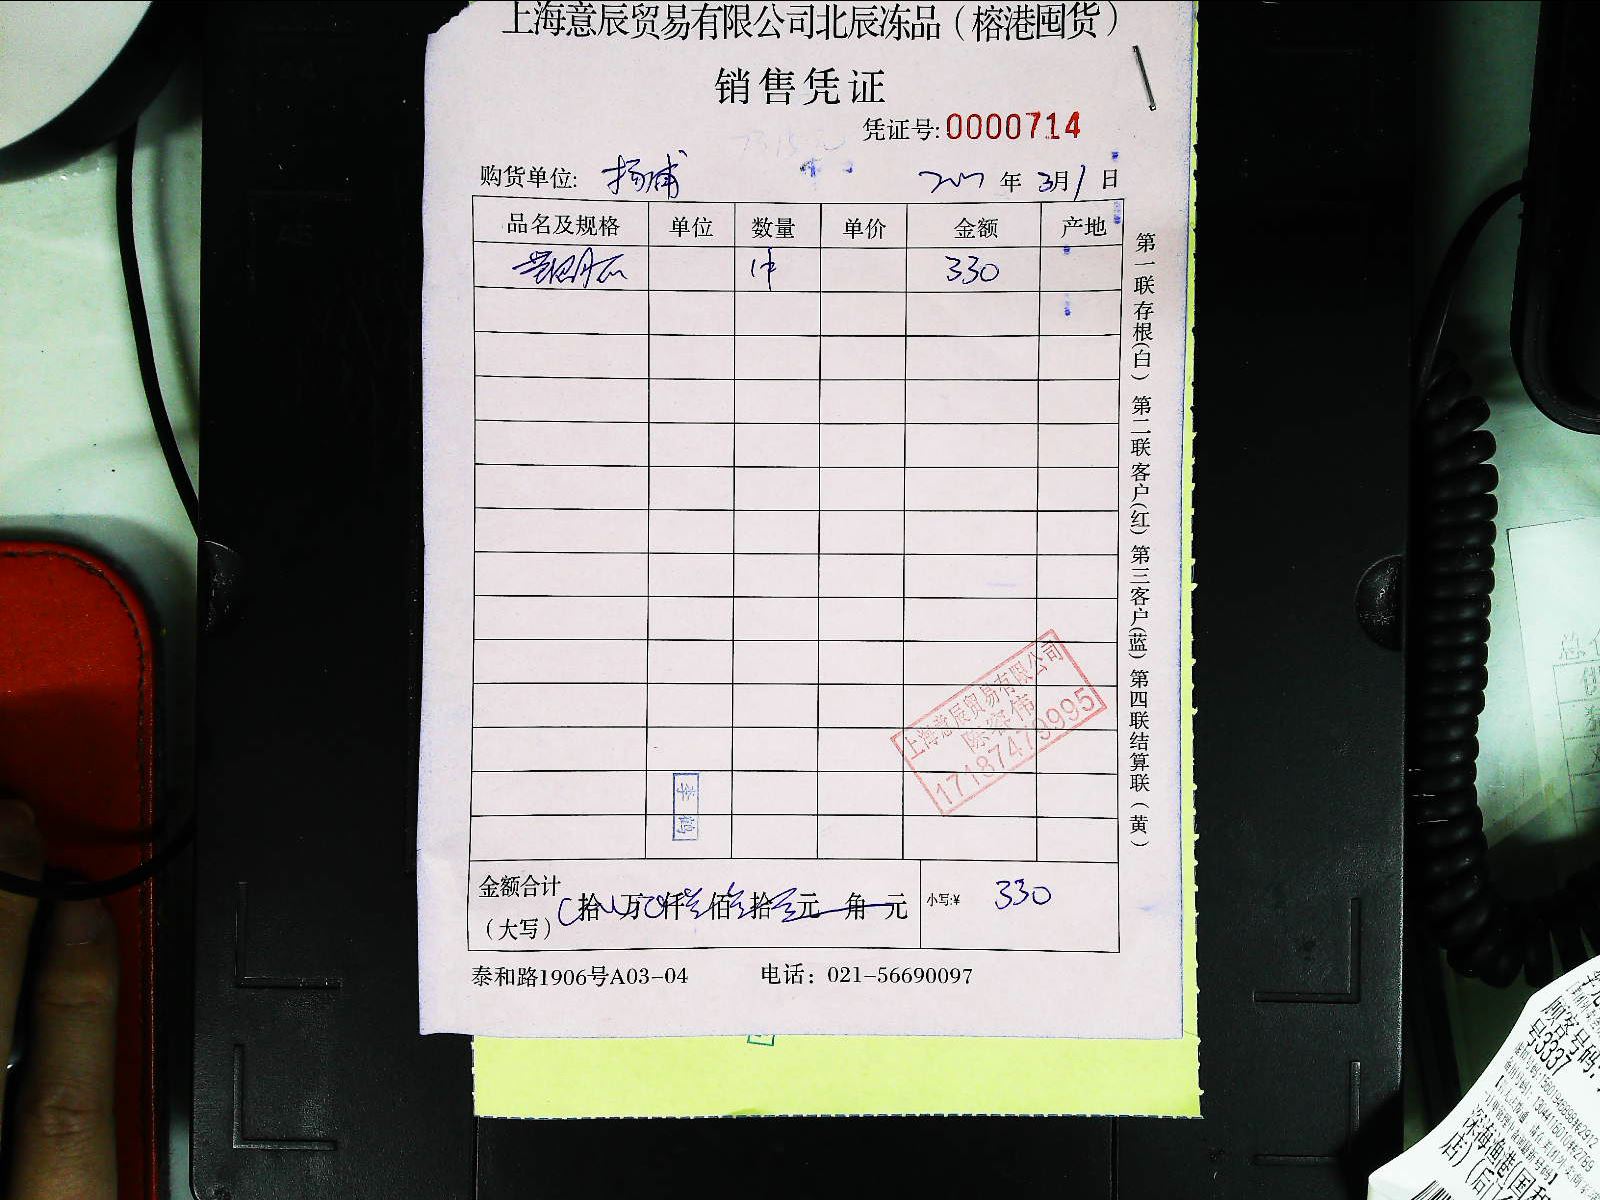 上海意辰贸易有限公司北辰冻品（榕港囤货）
销售凭证
凭证号:0000714
购货单位: 杨浦 年 3月1日
品名及规格 单位 数量 单价 金额 产地
1件 330
第一联存根(白) 第二联客户(红) 第三客户(蓝) 第四联结算联(黄)
上海意辰贸易有限公司
17187479995
李鹤
金额合计
（大写） 拾 万 仟 佰 拾 元 角 元 小写:¥ 330
泰和路1906号A03-04 电话：021-56690097
顾客号码:
号3337